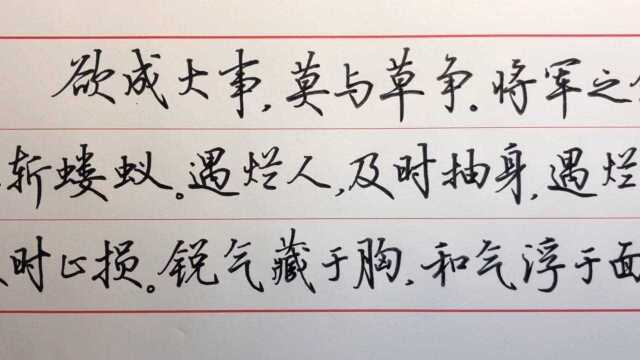 欲成大事,莫与草争。将军之
斩蝼蚁。遇烂人,及时抽身,遇烂
时止损。锐气藏于胸,和气浮于面